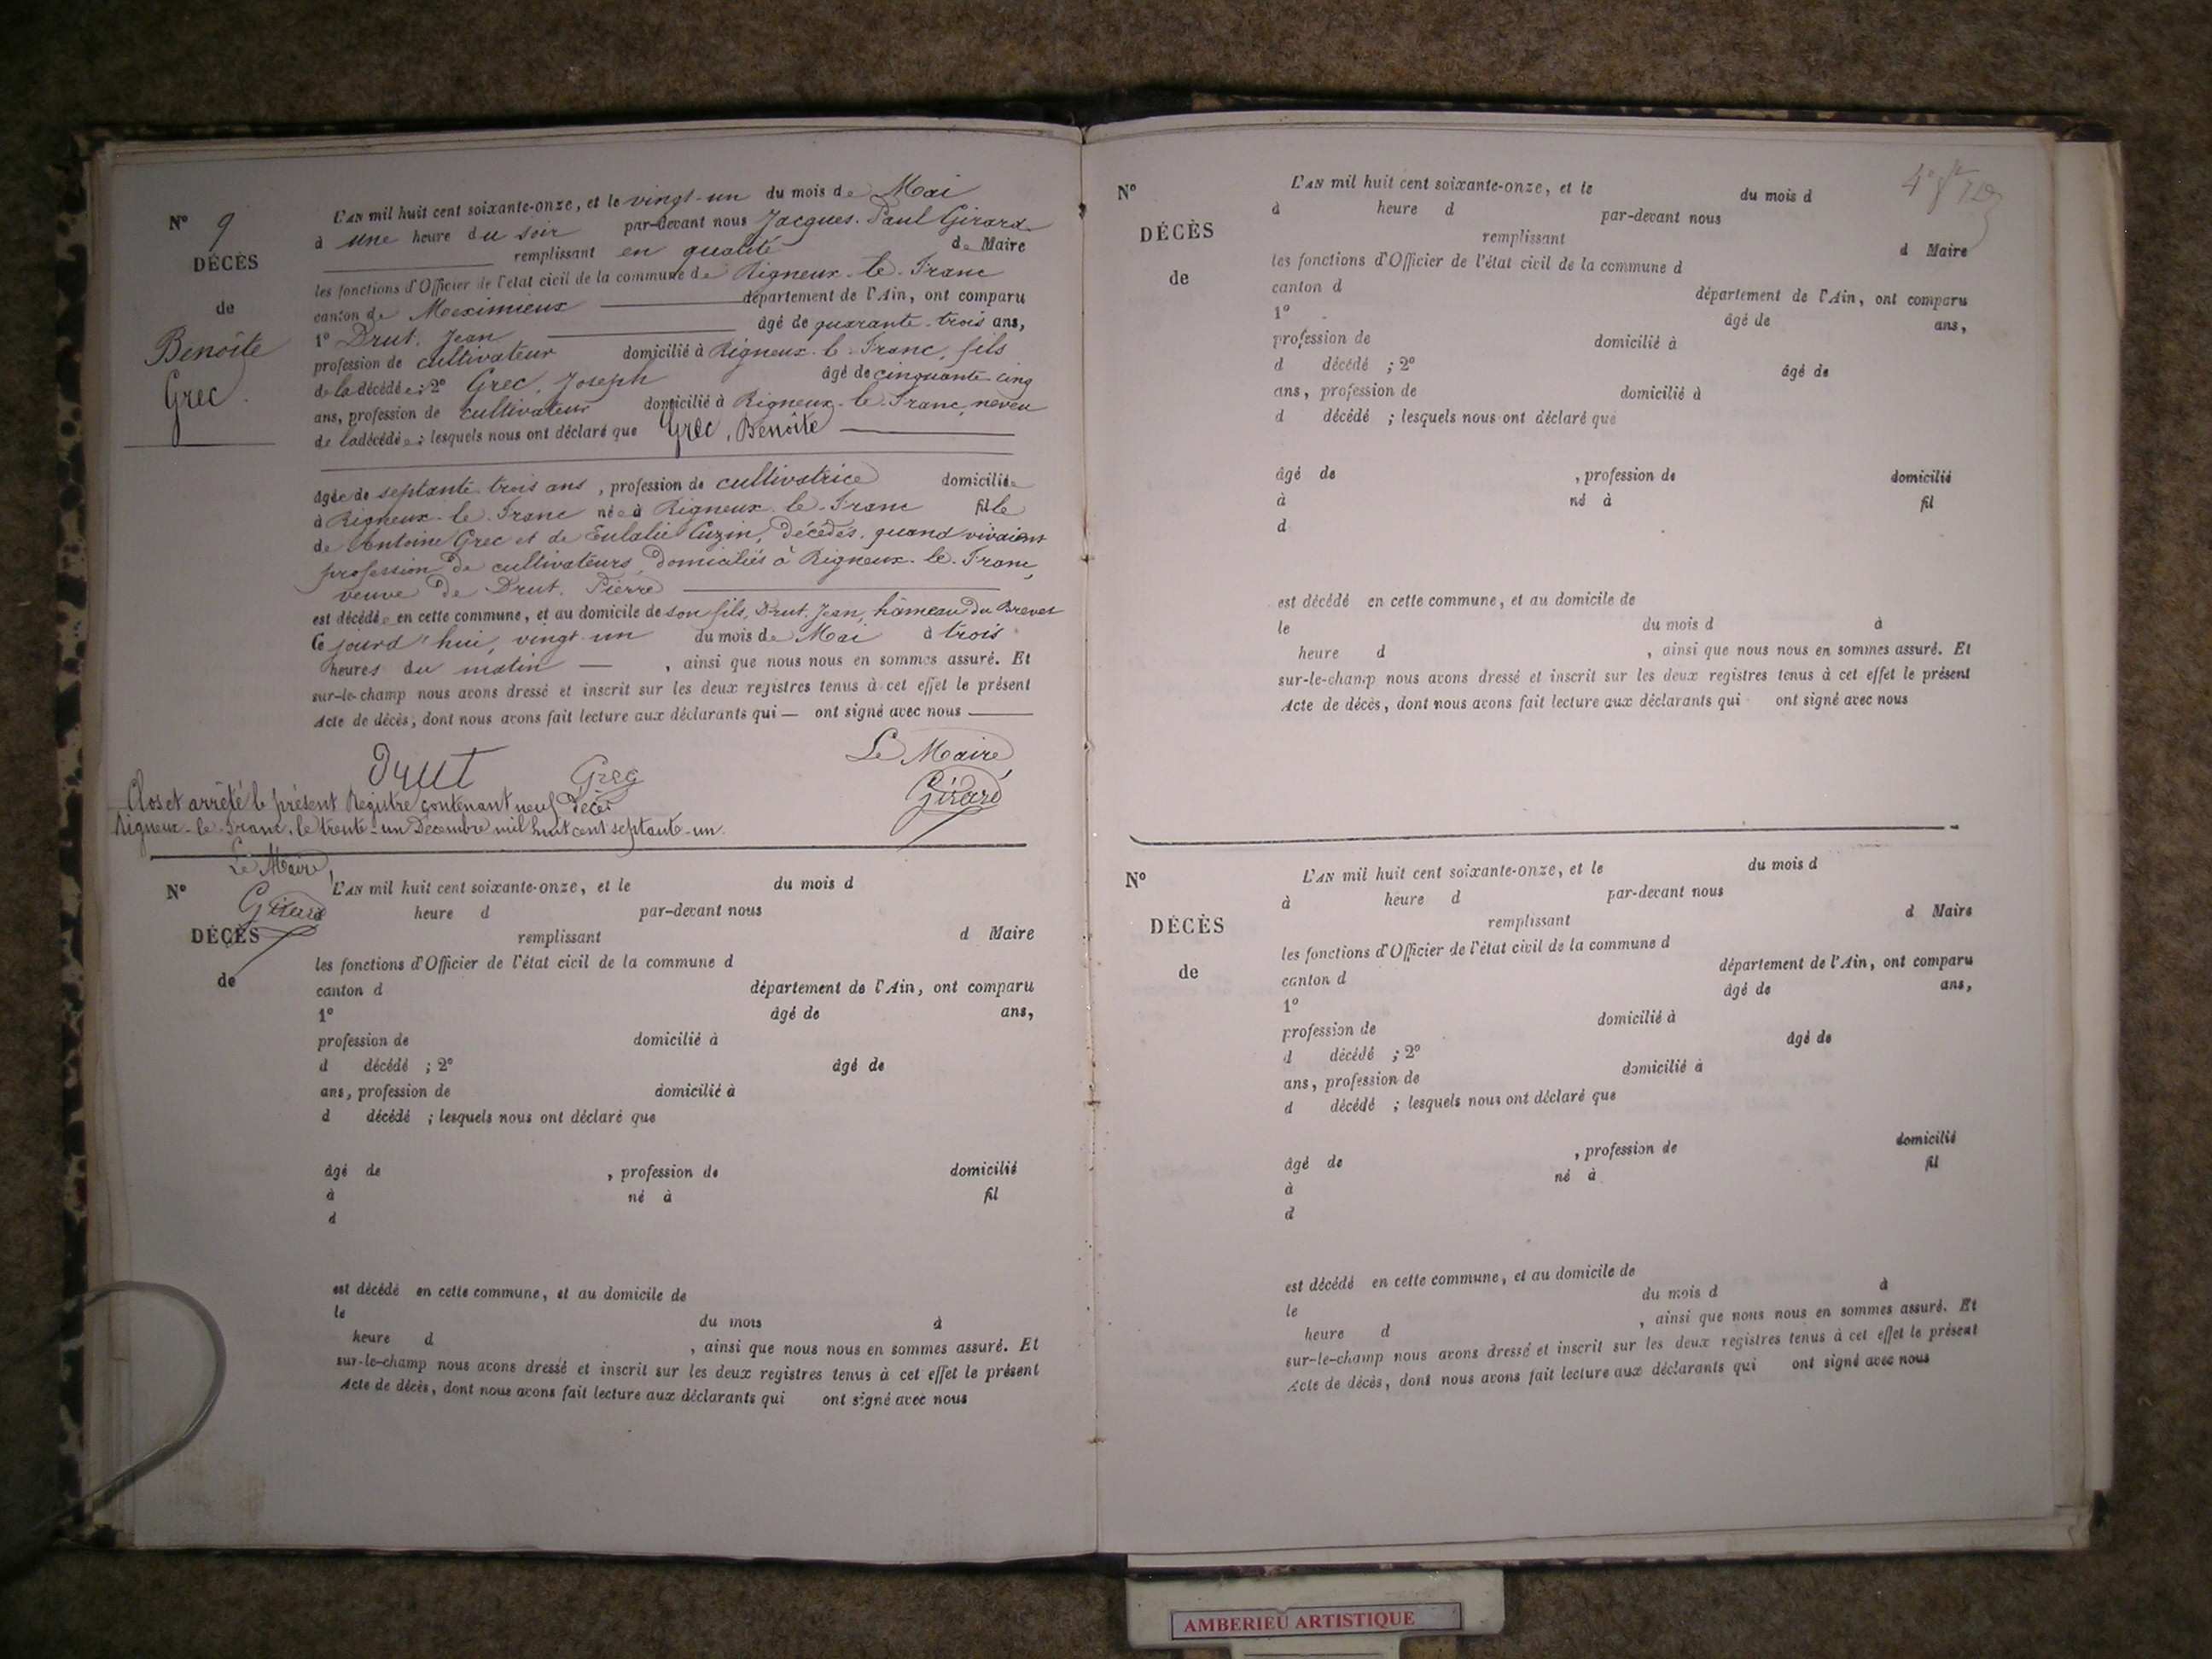 N° 9
DÉCÈS
de
Benoîte
Grec.
L'AN mil huit cent soixante-onze, et le vingt-un du mois de Mai
à une heure du soir par-devant nous Jacques-Paul Girard
remplissant en qualité de Maire
les fonctions d'Officier de l'état civil de la commune de Rigneux-le-Franc
canton de Meximieux département de l'Ain, ont comparu
1° Drut, Jean âgé de quarante-trois ans,
profession de cultivateur domicilié à Rigneux-le-Franc, fils
de la décédée; 2° Grec, Joseph âgé de cinquante-cinq
ans, profession de cultivateur domicilié à Rigneux-le-Franc, neveu
de la décédée; lesquels nous ont déclaré que Grec, Benoîte
âgée de septante-trois ans, profession de cultivatrice domiciliée
à Rigneux-le-Franc née à Rigneux-le-Franc fille
de Antoine Grec et de Eulalie Cuzin, décédés, quand vivaient
profession de cultivateurs, domiciliés à Rigneux-le-Franc,
veuve de Drut, Pierre
est décédée en cette commune, et au domicile de son fils, Drut, Jean, hameau du Brevet
ce jourd'hui, vingt-un du mois de Mai à trois
heures du matin — , ainsi que nous nous en sommes assuré. Et
sur-le-champ nous avons dressé et inscrit sur les deux registres tenus à cet effet le présent
Acte de décès, dont nous avons fait lecture aux déclarants qui — ont signé avec nous
Drut Greg Le Maire,
Girard
Clos et arrêté le présent Registre contenant neuf Décès
Rigneux-le-Franc, le trente-un Décembre mil huit cent septante-un.
Le Maire,
Girard
N°
DÉCÈS
de
L'AN mil huit cent soixante-onze, et le du mois d
heure d par-devant nous
remplissant d Maire
les fonctions d'Officier de l'état civil de la commune d
canton d département de l'Ain, ont comparu
1° âgé de ans,
profession de domicilié à
d décédé ; 2° âgé de
ans, profession de domicilié à
d décédé ; lesquels nous ont déclaré que
âgé de , profession de domicilié
à né à fil
d
est décédé en cette commune, et au domicile de
le du mois d à
heure d , ainsi que nous nous en sommes assuré. Et
sur-le-champ nous avons dressé et inscrit sur les deux registres tenus à cet effet le présent
Acte de décès, dont nous avons fait lecture aux déclarants qui ont signé avec nous
N°
DÉCÈS
de
L'AN mil huit cent soixante-onze, et le du mois d
à heure d par-devant nous
remplissant d Maire
les fonctions d'Officier de l'état civil de la commune d
canton d département de l'Ain, ont comparu
1° âgé de ans,
profession de domicilié à
d décédé ; 2° âgé de
ans, profession de domicilié à
d décédé ; lesquels nous ont déclaré que
âgé de , profession de domicilié
à né à fil
d
est décédé en cette commune, et au domicile de
le du mois d à
heure d , ainsi que nous nous en sommes assuré. Et
sur-le-champ nous avons dressé et inscrit sur les deux registres tenus à cet effet le présent
Acte de décès, dont nous avons fait lecture aux déclarants qui ont signé avec nous
N°
DÉCÈS
de
L'AN mil huit cent soixante-onze, et le du mois d
à heure d par-devant nous
remplissant d Maire
les fonctions d'Officier de l'état civil de la commune d
canton d département de l'Ain, ont comparu
1° âgé de ans,
profession de domicilié à
d décédé ; 2° âgé de
ans, profession de domicilié à
d décédé ; lesquels nous ont déclaré que
âgé de , profession de domicilié
à né à fil
d
est décédé en cette commune, et au domicile de
le du mois d à
heure d , ainsi que nous nous en sommes assuré. Et
sur-le-champ nous avons dressé et inscrit sur les deux registres tenus à cet effet le présent
Acte de décès, dont nous avons fait lecture aux déclarants qui ont signé avec nous
AMBERIEU ARTISTIQUE